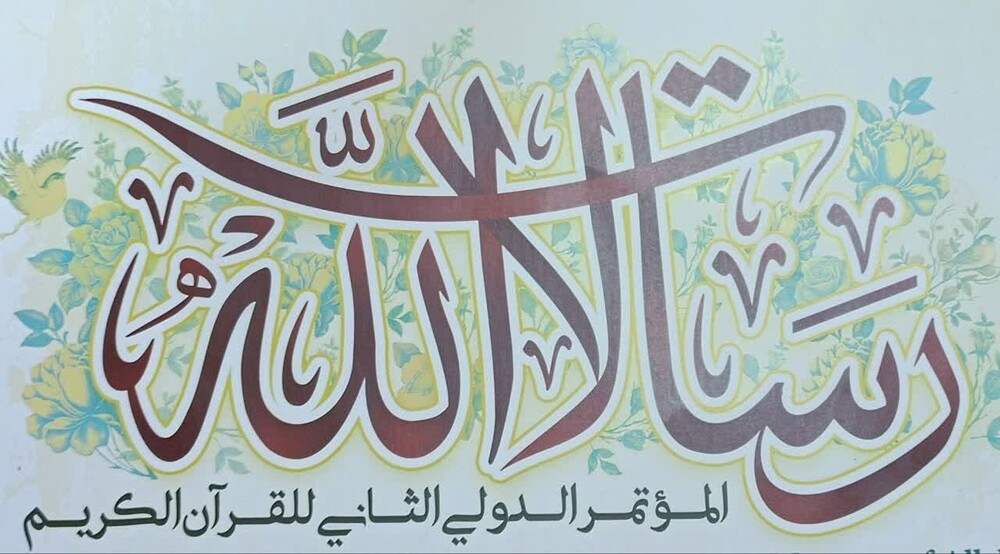 رسالات الله
المؤتمر الدولي الثاني للقرآن الكريم